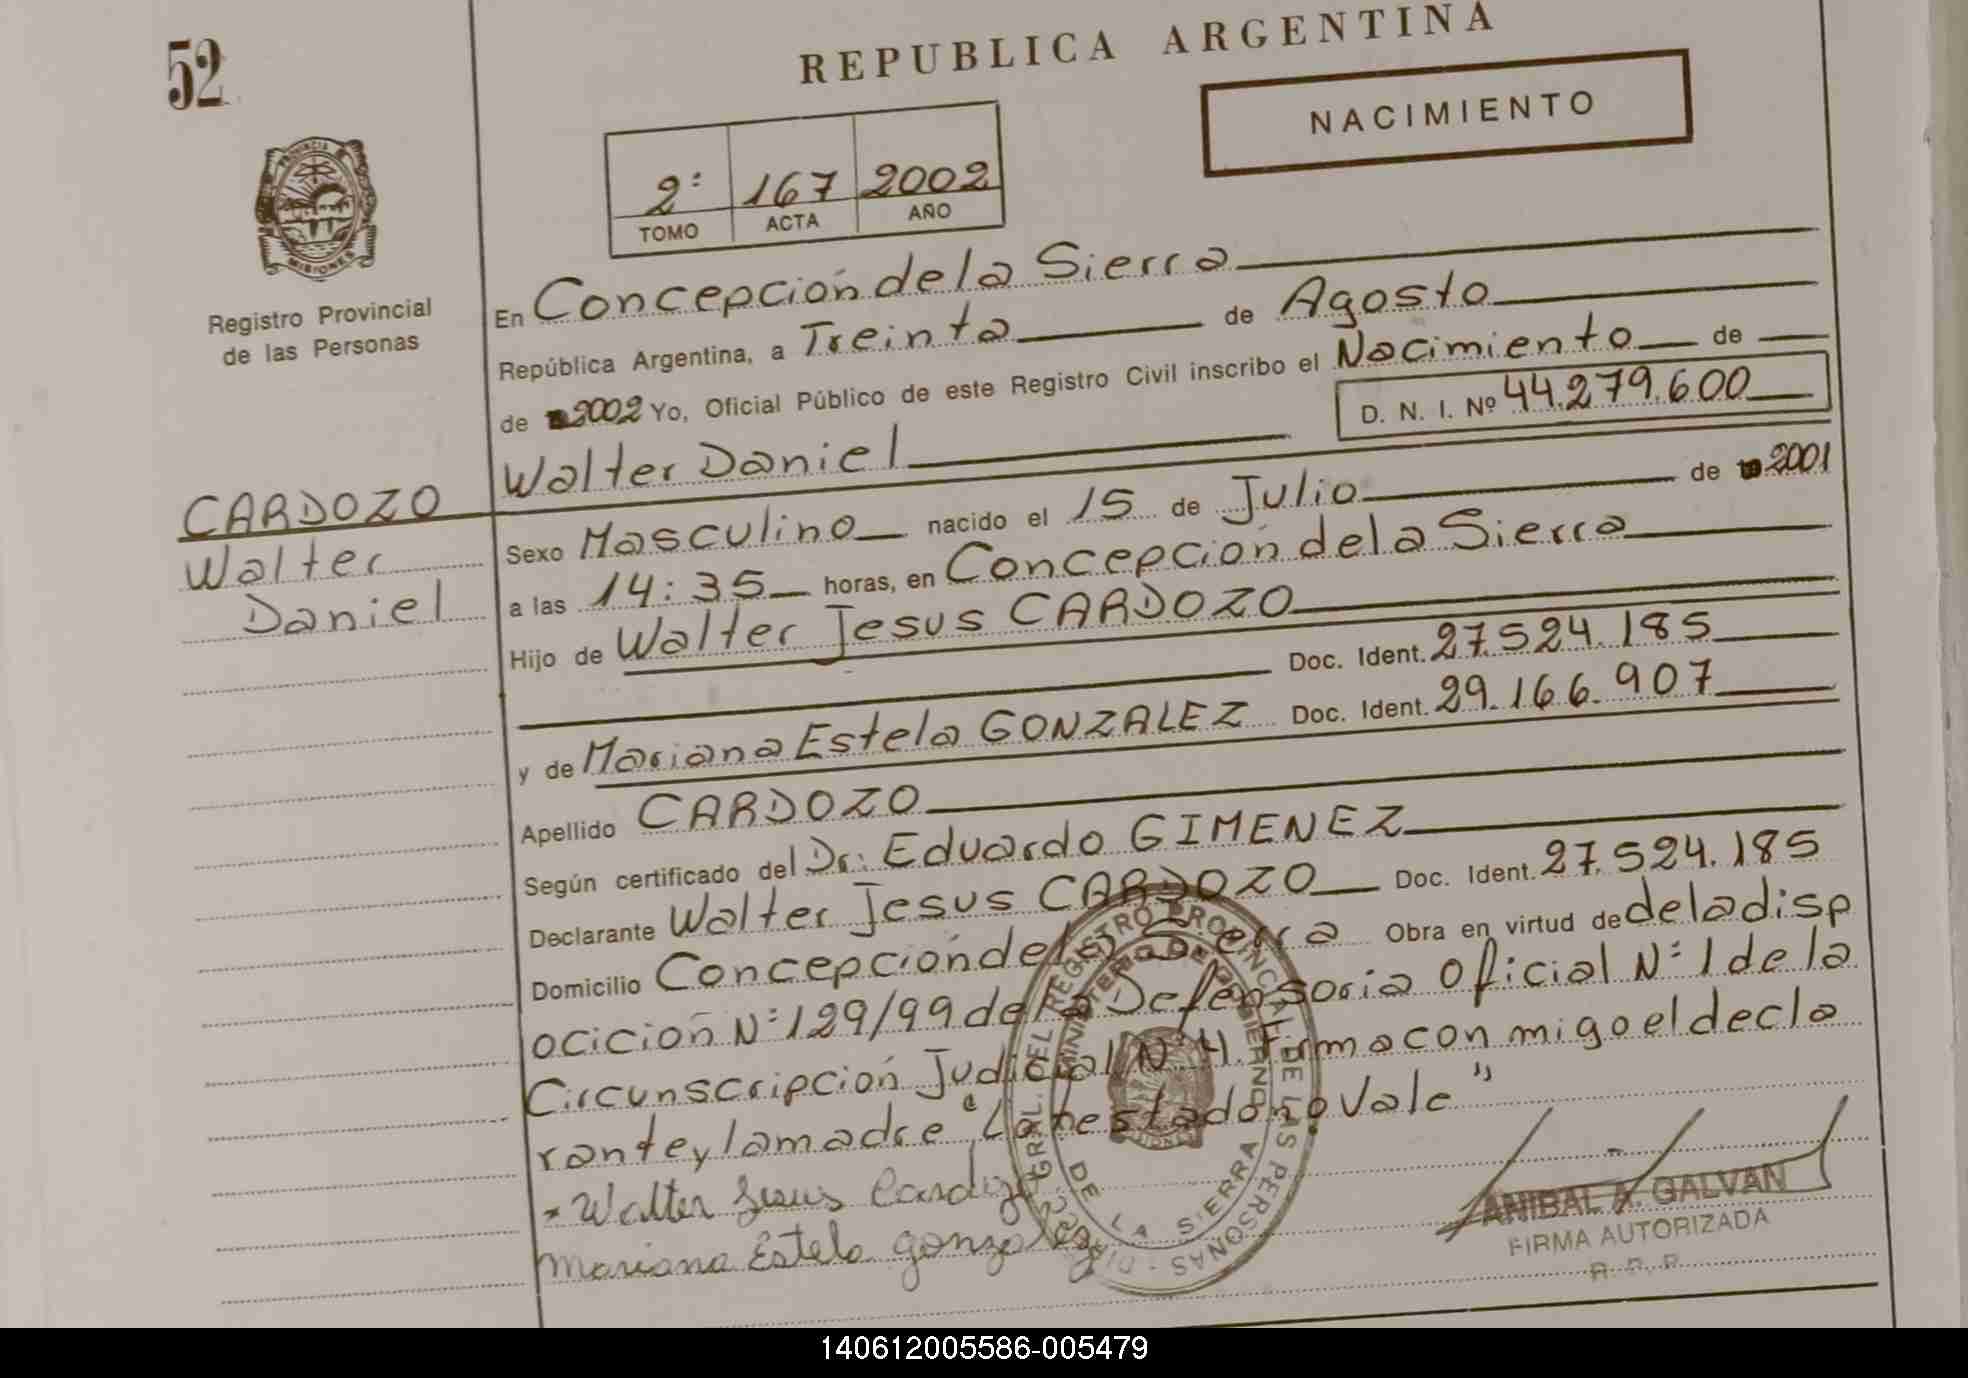 52
REPUBLICA ARGENTINA
NACIMIENTO
2º 167 2002
TOMO ACTA AÑO
PROVINCIA
MISIONES
Registro Provincial
de las Personas
En Concepción de la Sierra
República Argentina, a Treinta de Agosto
de 2002 Yo, Oficial Público de este Registro Civil inscribo el Nacimiento de
D. N. I. Nº 44.279.600
Walter Daniel
CARDOZO
Walter
Daniel
Sexo Masculino nacido el 15 de Julio de 2001
a las 14:35 horas, en Concepción de la Sierra
Hijo de Walter Jesus CARDOZO
Doc. Ident. 27.524.185
y de Mariana Estela GONZALEZ Doc. Ident. 29.166.907
Apellido CARDOZO
Según certificado del Dr: Eduardo GIMENEZ
Declarante Walter Jesus CARDOZO Doc. Ident. 27.524.185
Domicilio Concepción de la Sierra Obra en virtud de de la disp
ocición Nº 129/99 de la Defensoria Oficial Nº 1 de la
Circunscripción Judicial Nº 4. Firma con migo el decla
rante y la madre "Lo testado no Vale"
Walter Jesus Cardozo
Mariana Estela gonzalez
GRAL. DEL REGISTRO PROVINCIAL DE LAS PERSONAS
MINISTERIO DE GOBIERNO
DE LA SIERRA
ANIBAL A. GALVAN
FIRMA AUTORIZADA
R. P. P.
140612005586-005479